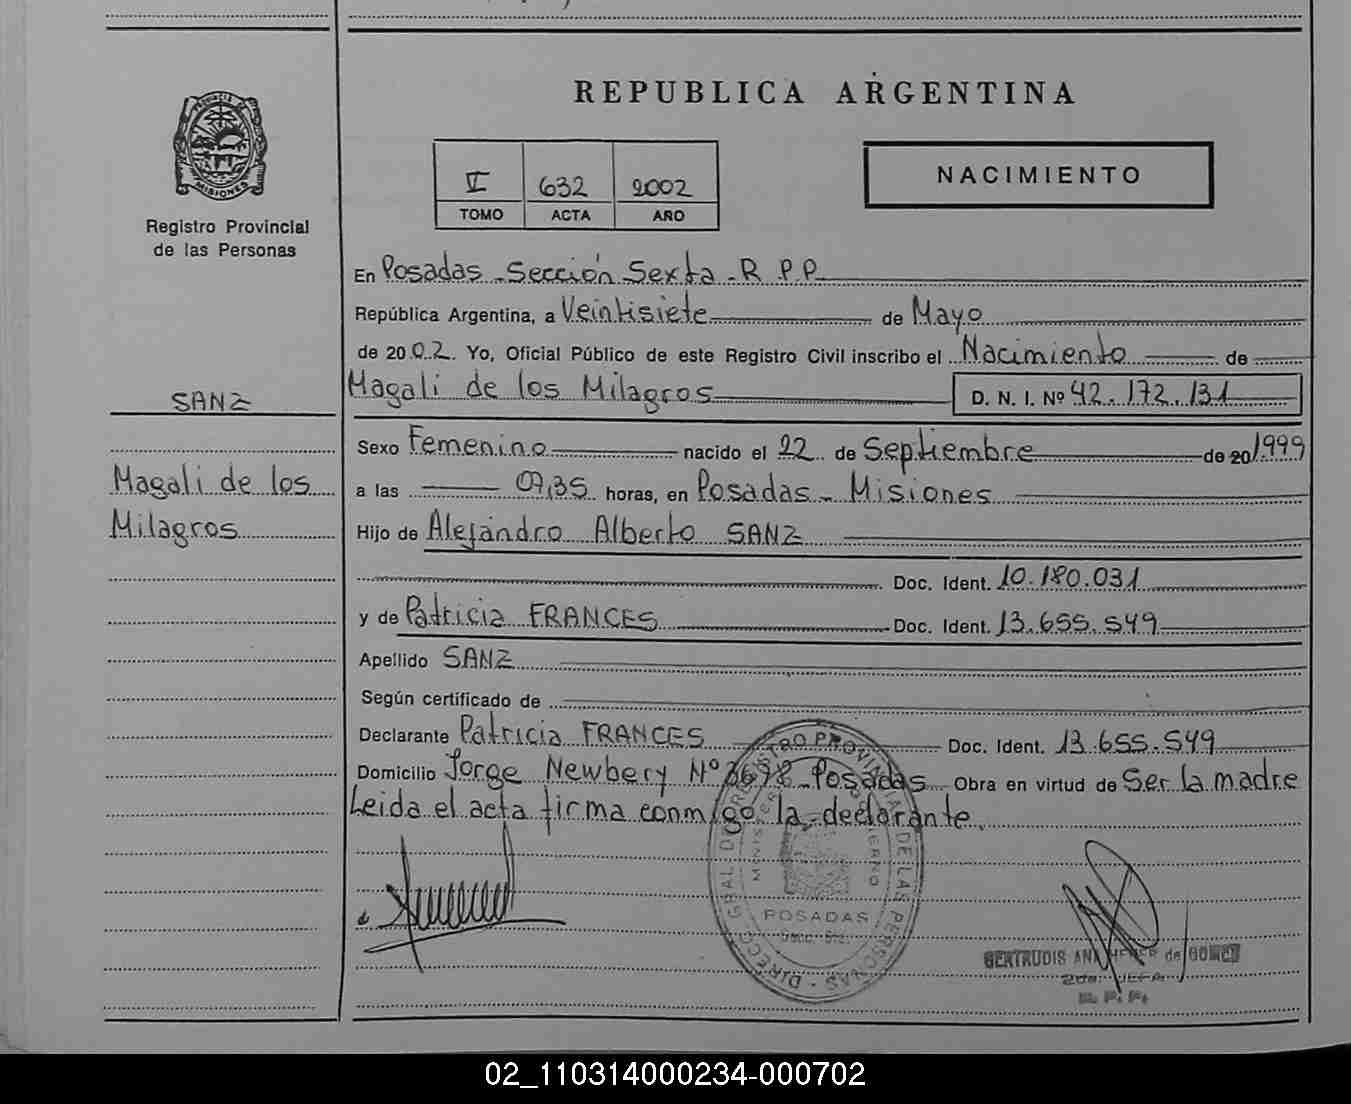 REPUBLICA ARGENTINA
PROVINCIA DE
MISIONES
Registro Provincial
de las Personas
II 632 2002
TOMO ACTA AÑO
NACIMIENTO
En Posadas - Sección Sexta - R P P
República Argentina, a Veintisiete de Mayo
de 2002. Yo, Oficial Público de este Registro Civil inscribo el Nacimiento de
Magali de los Milagros D. N. I. Nº 42.172.131
SANZ
Magali de los
Milagros
Sexo Femenino nacido el 22 de Septiembre de 20 1999
a las 07,35 horas, en Posadas - Misiones
Hijo de Alejandro Alberto SANZ
Doc. Ident. 10.180.031
y de Patricia FRANCES Doc. Ident. 13.655.549
Apellido SANZ
Según certificado de
Declarante Patricia FRANCES Doc. Ident. 13.655.549
Domicilio Jorge Newbery Nº 3698 Posadas Obra en virtud de Ser la madre
Leida el acta firma conmigo la declarante.
DIRECC. GRAL DE REGISTRO PROVINCIAL DE LAS PERSONAS
MINISTERIO GOBIERNO
POSADAS
GERTRUDIS ANA de GOMEZ
2da. JEFA
R. P. P.
02_110314000234-000702